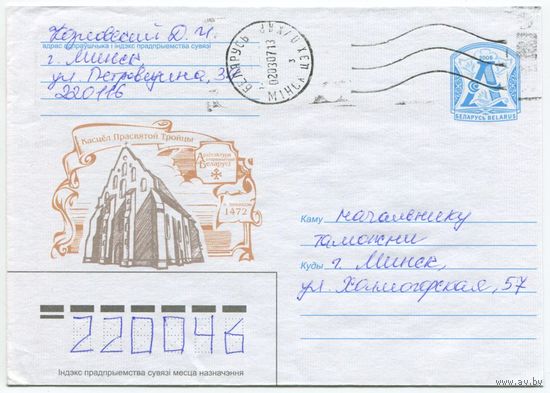 Кезовский Д. И.
адрас адпраўшчыка і індэкс прадпрыемства сувязі
г. Минск
ул Петровщина, 3
220116
БЕЛАРУСЬ
МІНСК
02030713
2006
А
БЕЛАРУСЬ BELARUS
Касцёл Прасвятой Тройцы
Архітэктура
Беларусі
1472
Каму начальнику
таможни
Куды г. Минск,
ул. Холмогорская, 57
220046
Індэкс прадпрыемства сувязі месца назначэння
www.av.by